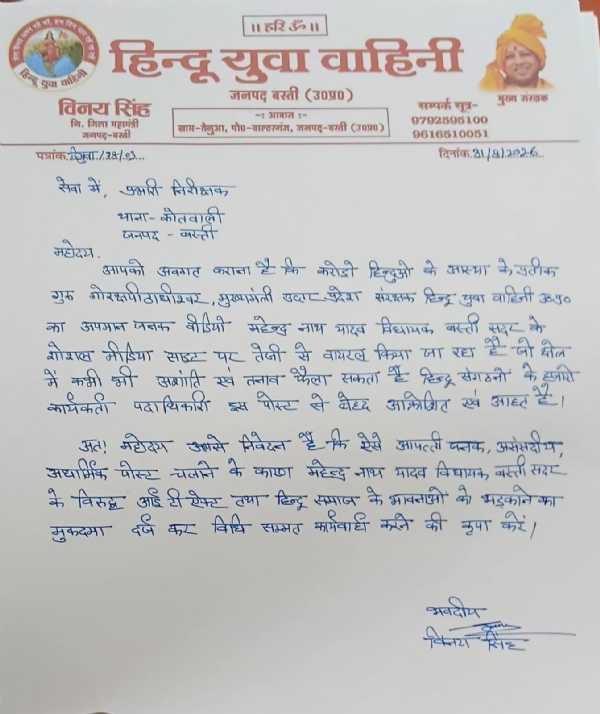 ॥ हरि ॐ ॥
हिन्दू युवा वाहिनी
हिन्दू युवा वाहिनी
जनपद बस्ती (उ०प्र०)
मुख्य संरक्षक
विनय सिंह
नि. जिला महामंत्री
जनपद-बस्ती
-: आवास :-
ग्राम-तेनुआ, पो०-वाल्टरगंज, जनपद-बस्ती (उ०प्र०)
सम्पर्क सूत्र-
9792595100
9616510051
पत्रांक
दिनांक 31/8/2026
सेवा में, प्रभारी निरीक्षक
थाना - कोतवाली
जनपद - बस्ती
महोदय,
आपको अवगत कराना है कि करोडो हिन्दुओ के आस्था के प्रतीक
गुरु गोरक्षपीठाधीश्वर, मुख्यमंत्री उत्तर प्रदेश संरक्षक हिन्दू युवा वाहिनी उ०प्र०
का अपमान जनक वीडियो महेन्द्र नाथ यादव विधायक बस्ती सदर के
शोसल मीडिया साइट पर तेजी से वायरल किया जा रहा है जो क्षेत्र
में कभी भी अशांति एवं तनाव फैला सकता है हिन्दू संगठनो के हजारो
कार्यकर्ता पदाधिकारी इस पोस्ट से बेहद आक्रोशित एवं आहत है।
अतः महोदय आपसे निवेदन है कि ऐसे आपत्ती जनक, असंसदीय,
अधार्मिक पोस्ट चलाने के कारण महेन्द्र नाथ यादव विधायक बस्ती सदर
के विरुद्ध आई टी ऐक्ट तथा हिन्दू समाज के भावनाओ को भड़काने का
मुकदमा दर्ज कर विधि सम्मत कार्यवाही करने की कृपा करें।
भवदीय
विनय सिंह